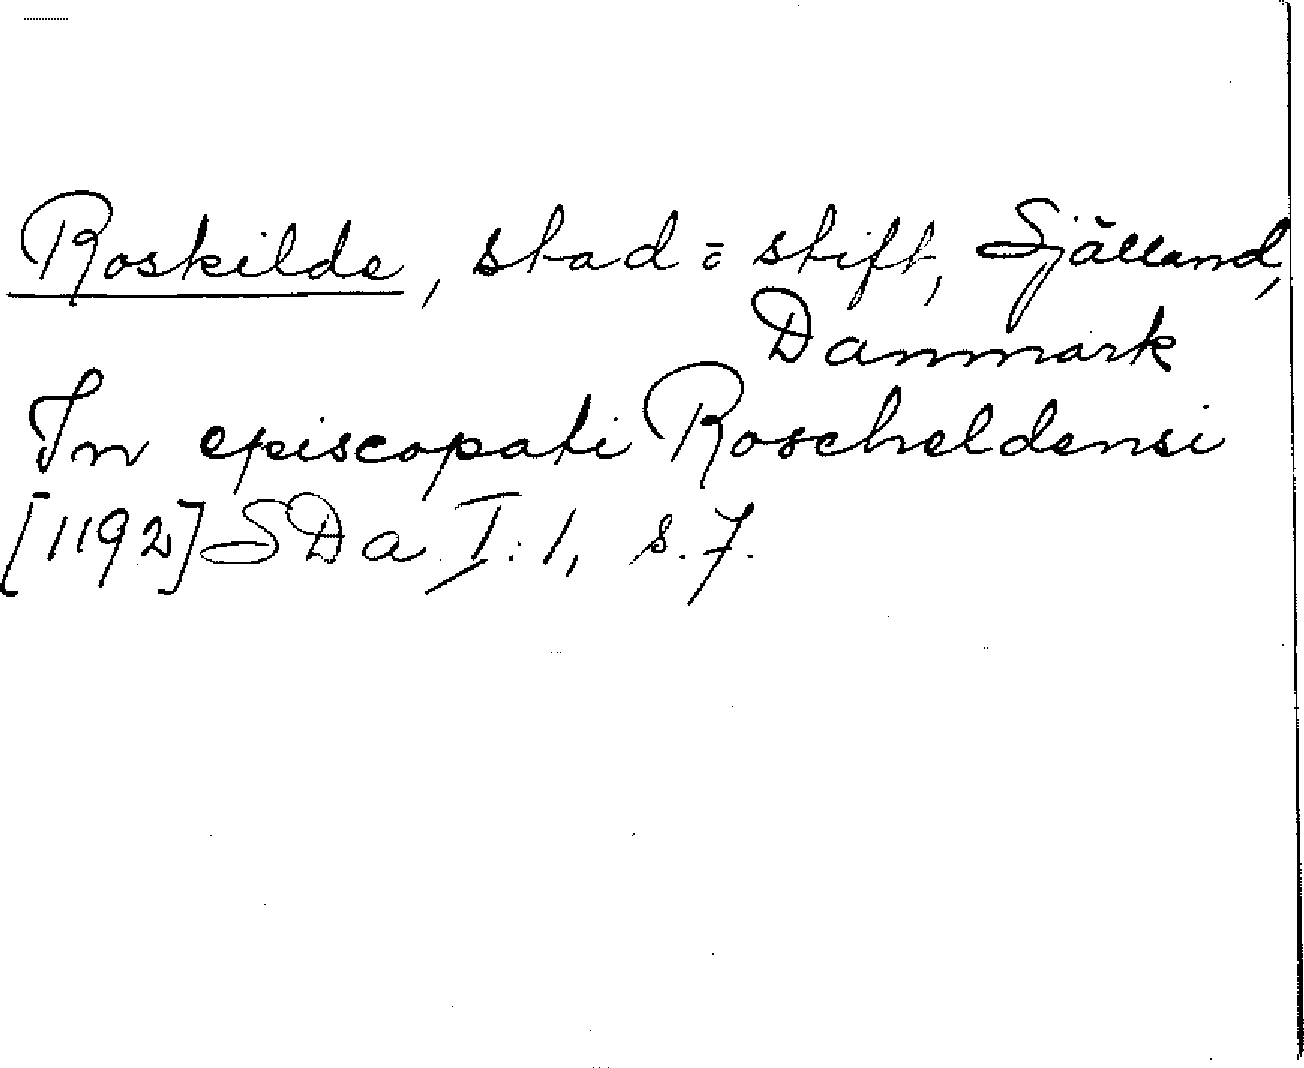 Roskilde, stad o stift, Själland,
Danmark
In episcopati Roscheldensi
[1192] SDa I:1, s. 7.